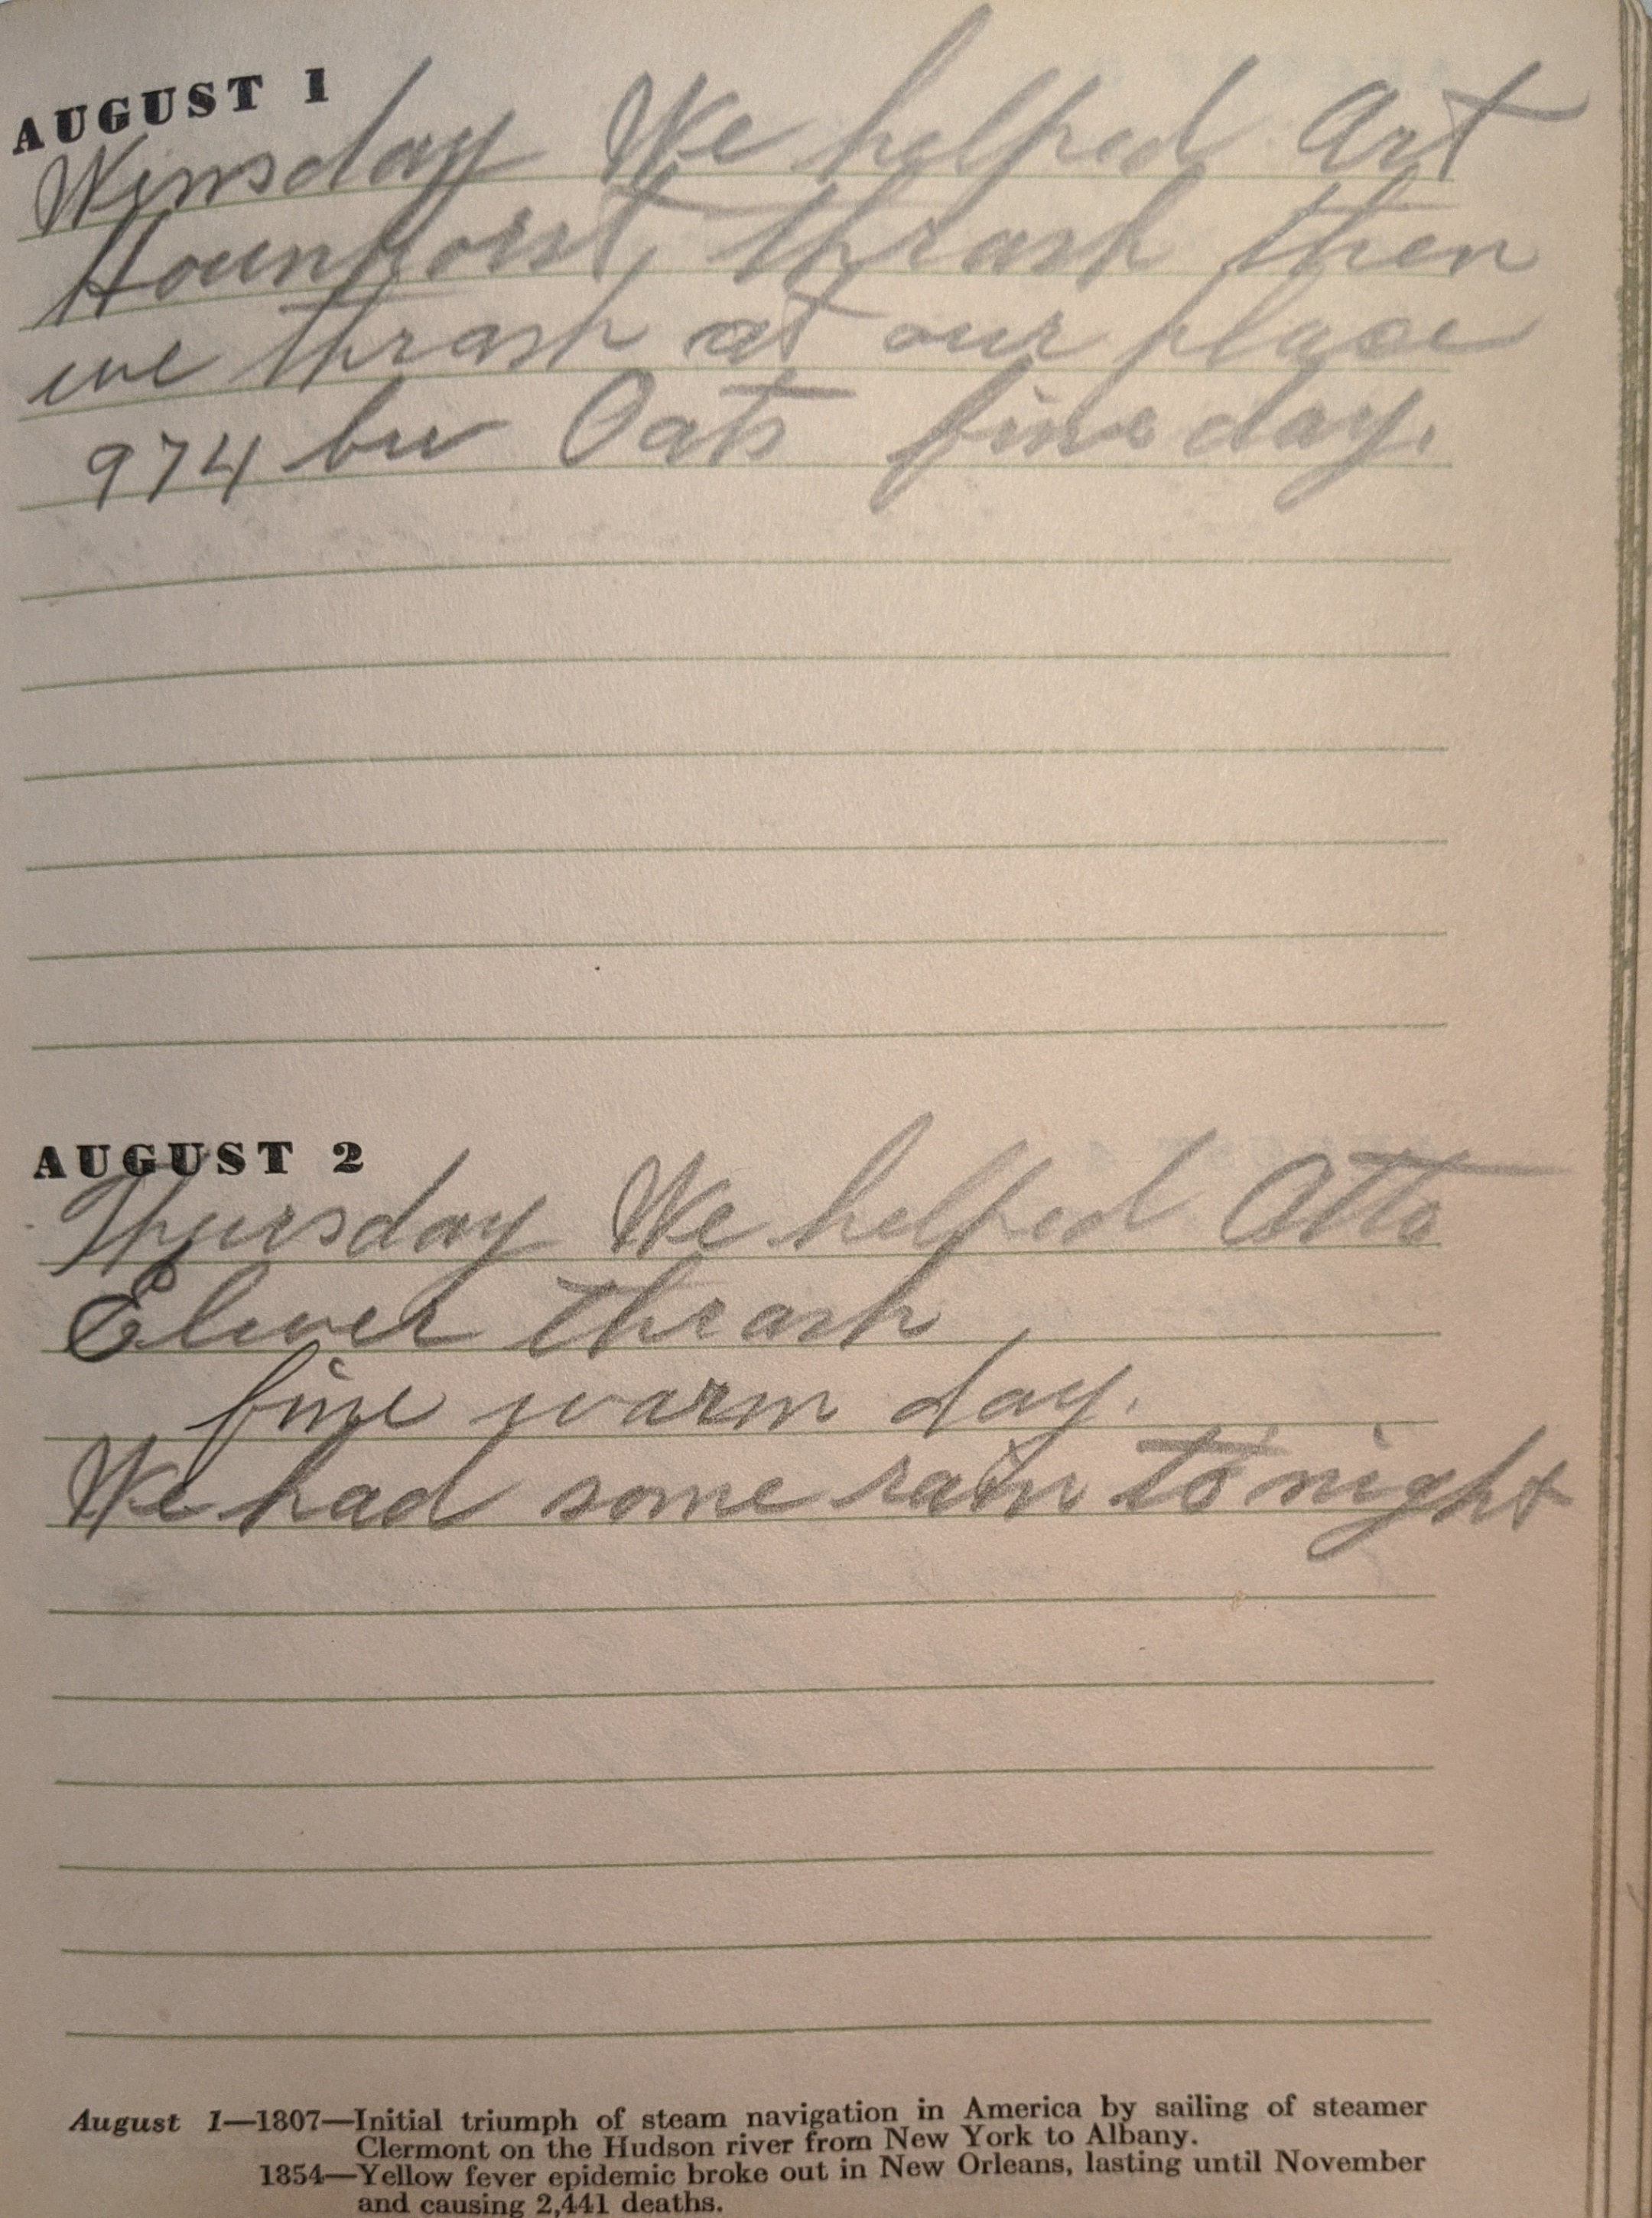 AUGUST 1
Winsday We helped Art
thrash then
we thrash at our place
974 bu Oats fine day.
AUGUST 2
Thursday We helped Otto
thrash
fine warm day.
We had some rain to night
August 1—1807—Initial triumph of steam navigation in America by sailing of steamer
Clermont on the Hudson river from New York to Albany.
1854—Yellow fever epidemic broke out in New Orleans, lasting until November
and causing 2,441 deaths.